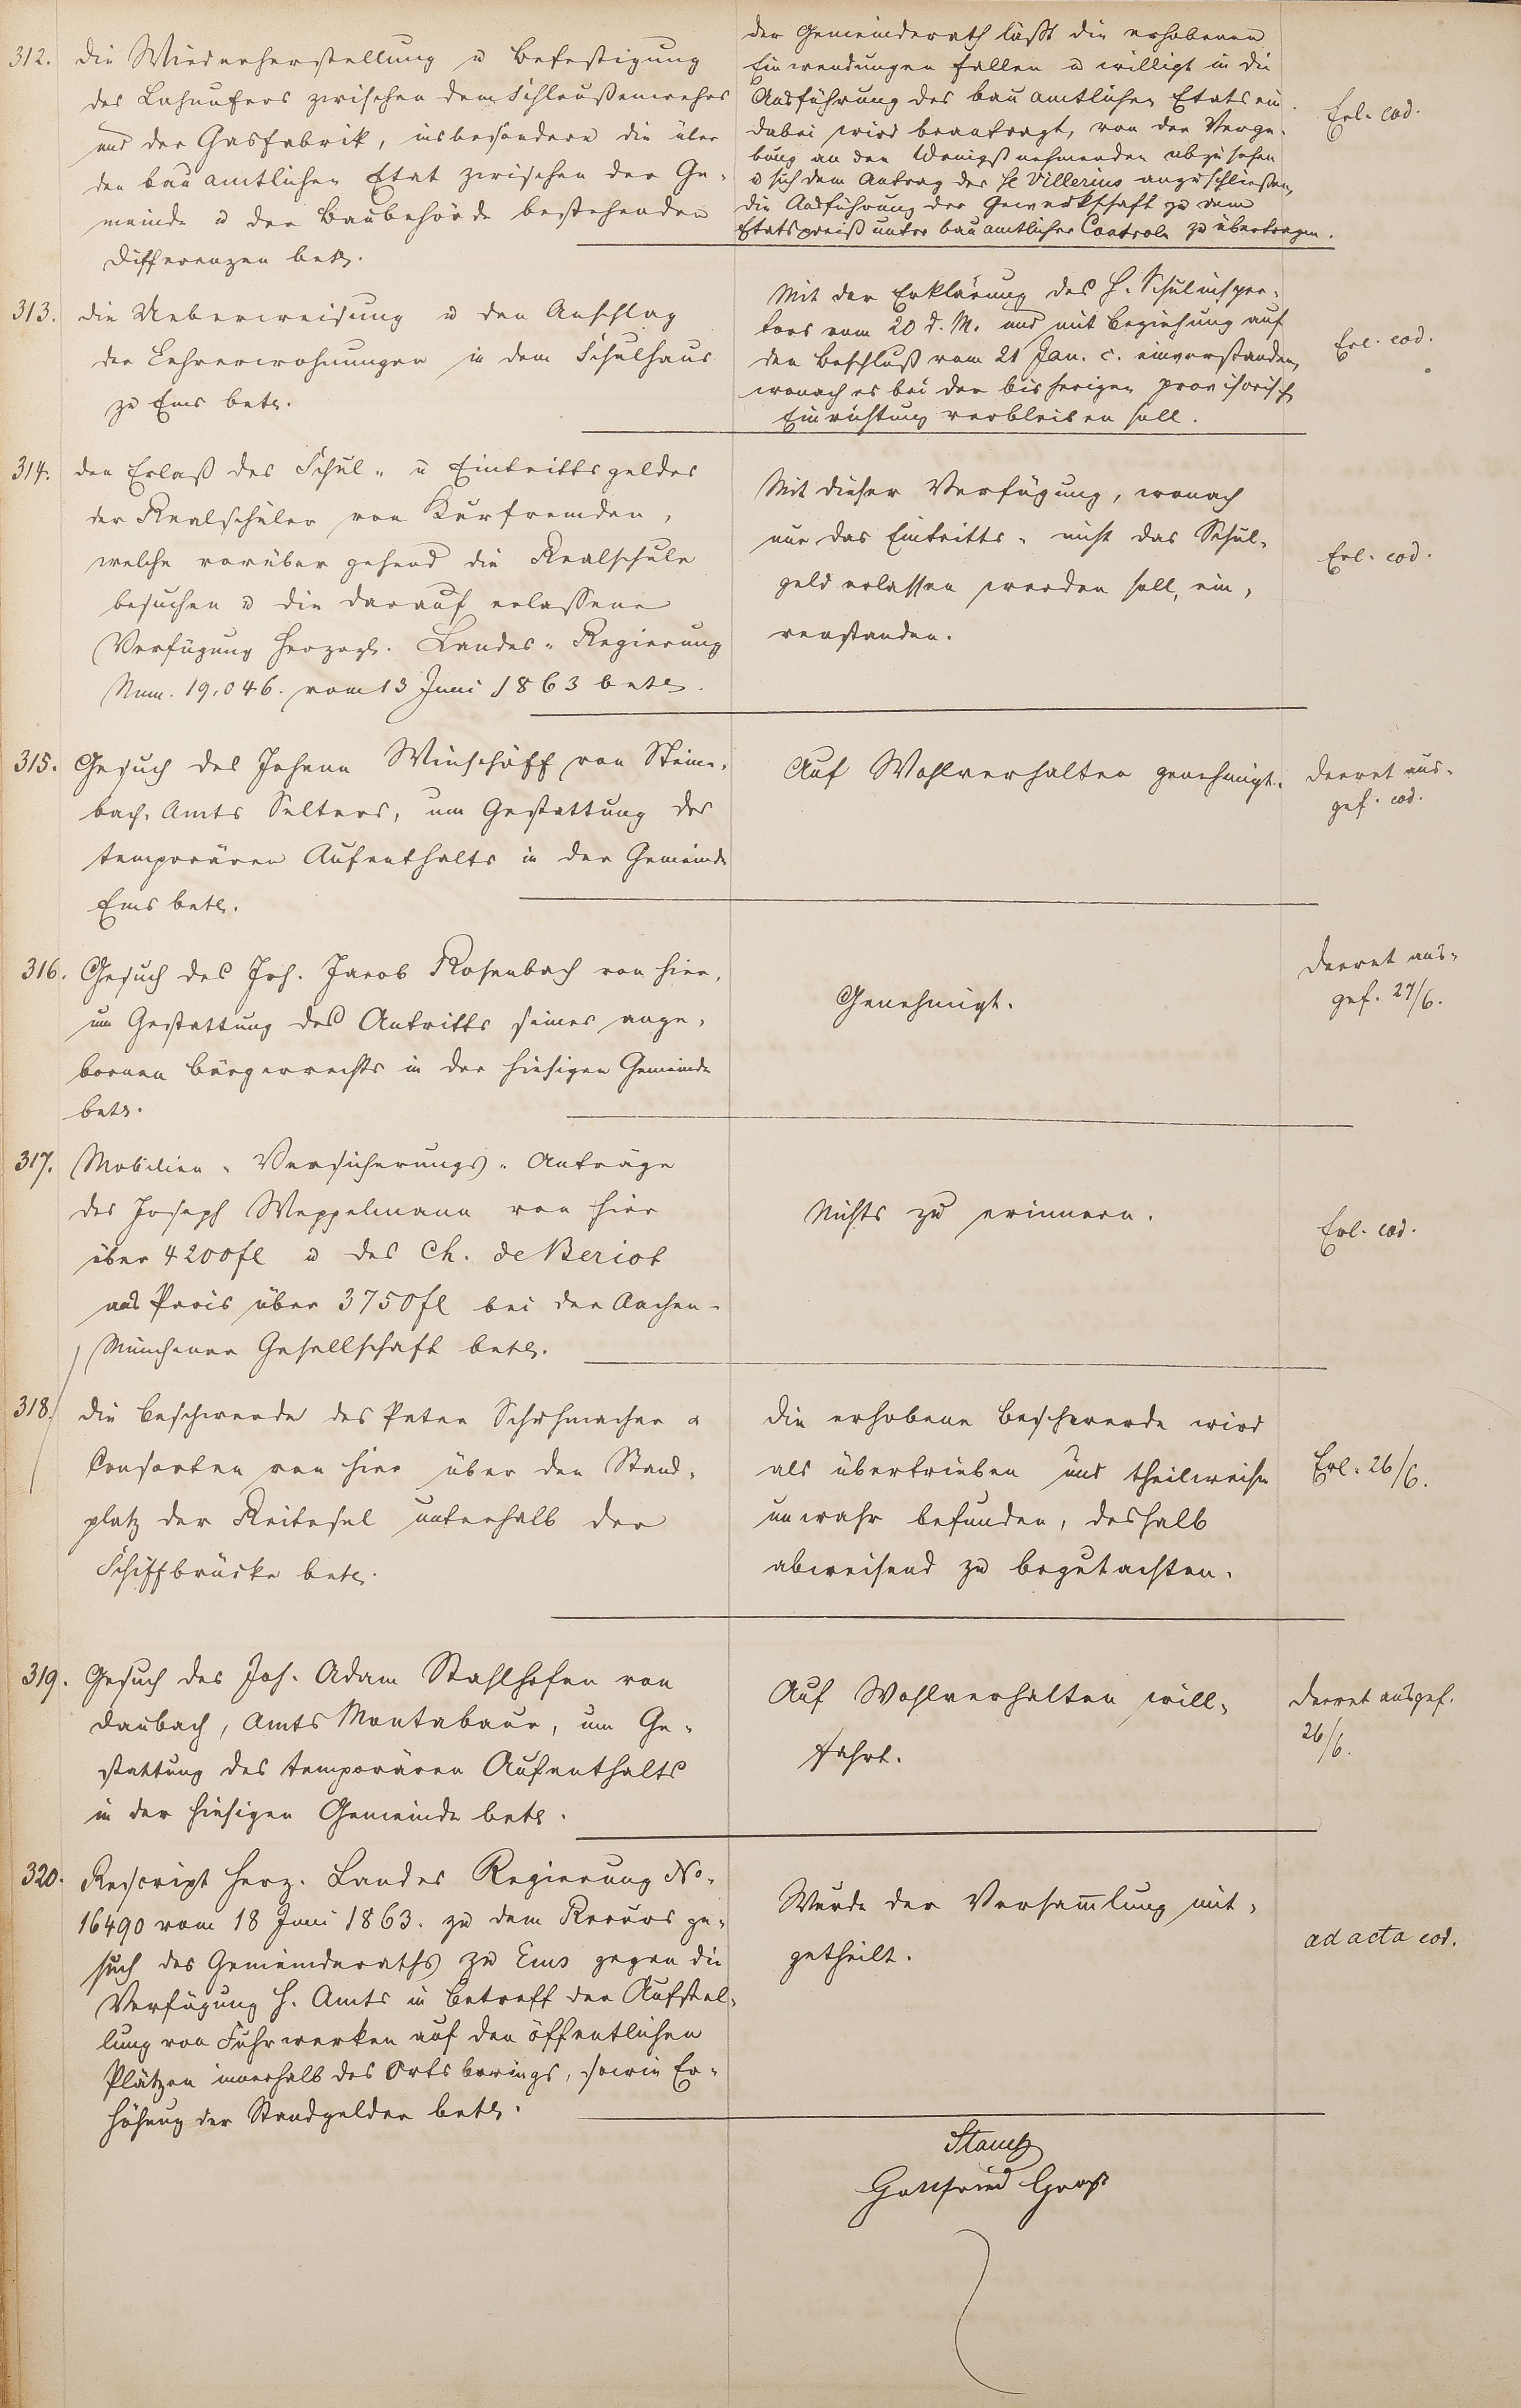 312.
die Wiederherstellung u Befestigung
des Lahnufers zwischen dem Schleußenwehr
und der Gasfabrik, insbesondere die über
den bauamtlichen Etat zwischen der Ge-
meinde u der Baubehörde bestehenden
Differenzen betr.
der Gemeinderath läßt die erhobenen
Einwendungen fallen u willigt in die
Ausführung des bauamtlichen Etats ein.
dabei wird beantragt, von der Verge-
bung an den Wenigstnehmenden abzusehen
u sich dem Antrag des H Villerius anzuschließen,
die Ausführung der Gewerkschaft zu dem
Etatspreiß unter bauamtlicher Controle zu übertragen.
Erl. eod.
313.
die Ueberweisung u den Anschlag
der Lehrerwohnungen in dem Schulhaus
zu Ems betr.
Mit der Erklärung des H. Schulinspec-
tors vom 20 d. M. und mit Beziehung auf
den Beschluß vom 21 Jan. c. einverstanden,
wonach es bei der bisherigen provisorisch
Einrichtung verbleiben soll.
Erl. eod.
314.
den Erlaß des Schul- u Eintrittsgeldes
der Realschüler von Kurfremden,
welche vorübergehend die Realschule
besuchen u die darauf erlassene
Verfügung Herzogl. Landes-Regierung
Num. 19,046. vom 13 Juni 1863 betr.
Mit dieser Verfügung, wonach
nur das Eintritts- nicht das Schul-
geld erlassen werden soll, ein-
verstanden.
Erl. eod.
315.
Gesuch des Johann Winschöff von Steine-
bach, Amts Selters, um Gestattung des
temporären Aufenthalts in der Gemeinde
Ems betr.
Auf Wohlverhalten genehmigt.
Decret aus-
gef. eod.
316.
Gesuch des Joh. Jacob Rosenbach von hier,
um Gestattung des Antritts seines ange-
bornen Bürgerrechts in der hiesigen Gemeinde
betr.
Genehmigt.
Decret aus-
gef. 27/6.
317.
Mobilien-Versicherungs-Anträge
des Joseph Weppelmann von hier
über 4200 fl u des Ch. de Beriot
aus Paris über 3750 fl bei der Aachen-
Münchener Gesellschaft betr.
Nichts zu erinnern.
Erl. eod.
318.
die Beschwerde des Peter Schuhmacher &
Consorten von hier über den Stand-
platz der Reitesel unterhalb der
Schiffbrücke betr.
die erhobene Beschwerde wird
als übertrieben und theilweise
unwahr befunden, deshalb
abweisend zu begutachten.
Erl. 26/6.
319.
Gesuch des Joh. Adam Stahlhofen von
Daubach, Amts Montabaur, um Ge-
stattung des temporären Aufenthalts
in der hiesigen Gemeinde betr.
Auf Wohlverhalten will-
fahrt.
Decret ausgef.
26/6.
320.
Rescript Herz. Landes Regierung No.
16490 vom 18 Juni 1863. zu dem Recurs ge-
such des Gemeinderaths zu Ems gegen die
Verfügung H. Amts in Betreff der Aufstel-
lung von Fuhrwerken auf den öffentlichen
Plätzen innerhalb des Ortsberings, sowie Er-
höhung der Standgelder betr.
Wurde der Versammlung mit-
getheilt.
ad acta eod.
Gottfried